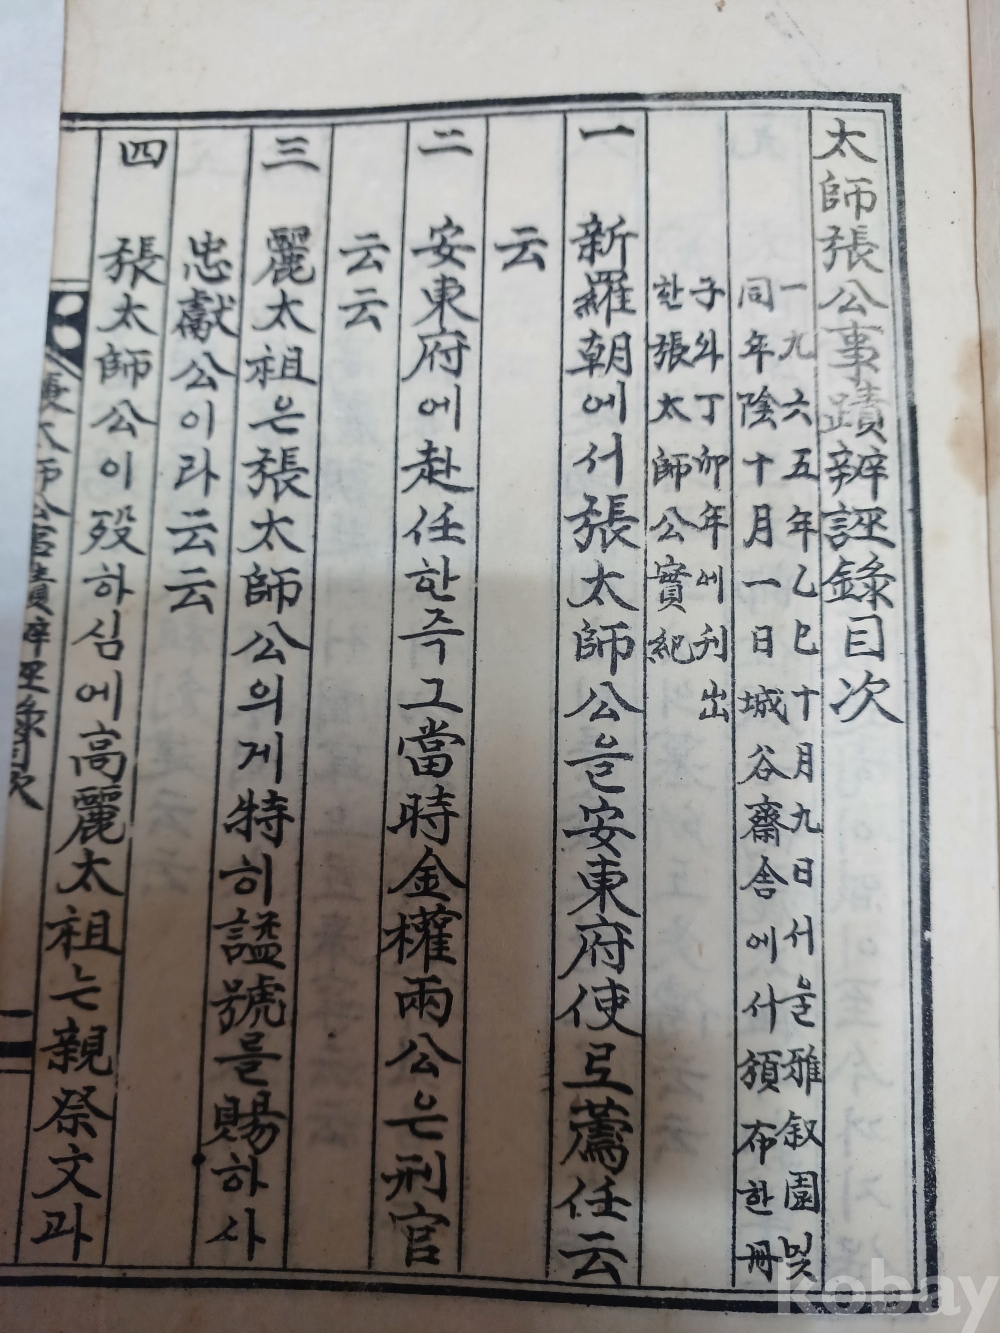 太師張公事蹟辨誣錄目次
一九六五年乙巳十月九日서울雅叙園및
同年陰十月一日城谷齋舍에서頒布한冊
子와丁卯年에刊出
한張太師公實紀
一 新羅朝에서張太師公을安東府使로薦任云
云
二 安東府에赴任한즉그當時金權兩公은刑官
云云
三 麗太祖은張太師公의게特히謚號를賜하사
忠獻公이라云云
四 張太師公이歿하심에高麗太祖는親祭文과
張太師公事蹟辨誣錄目次
kobay